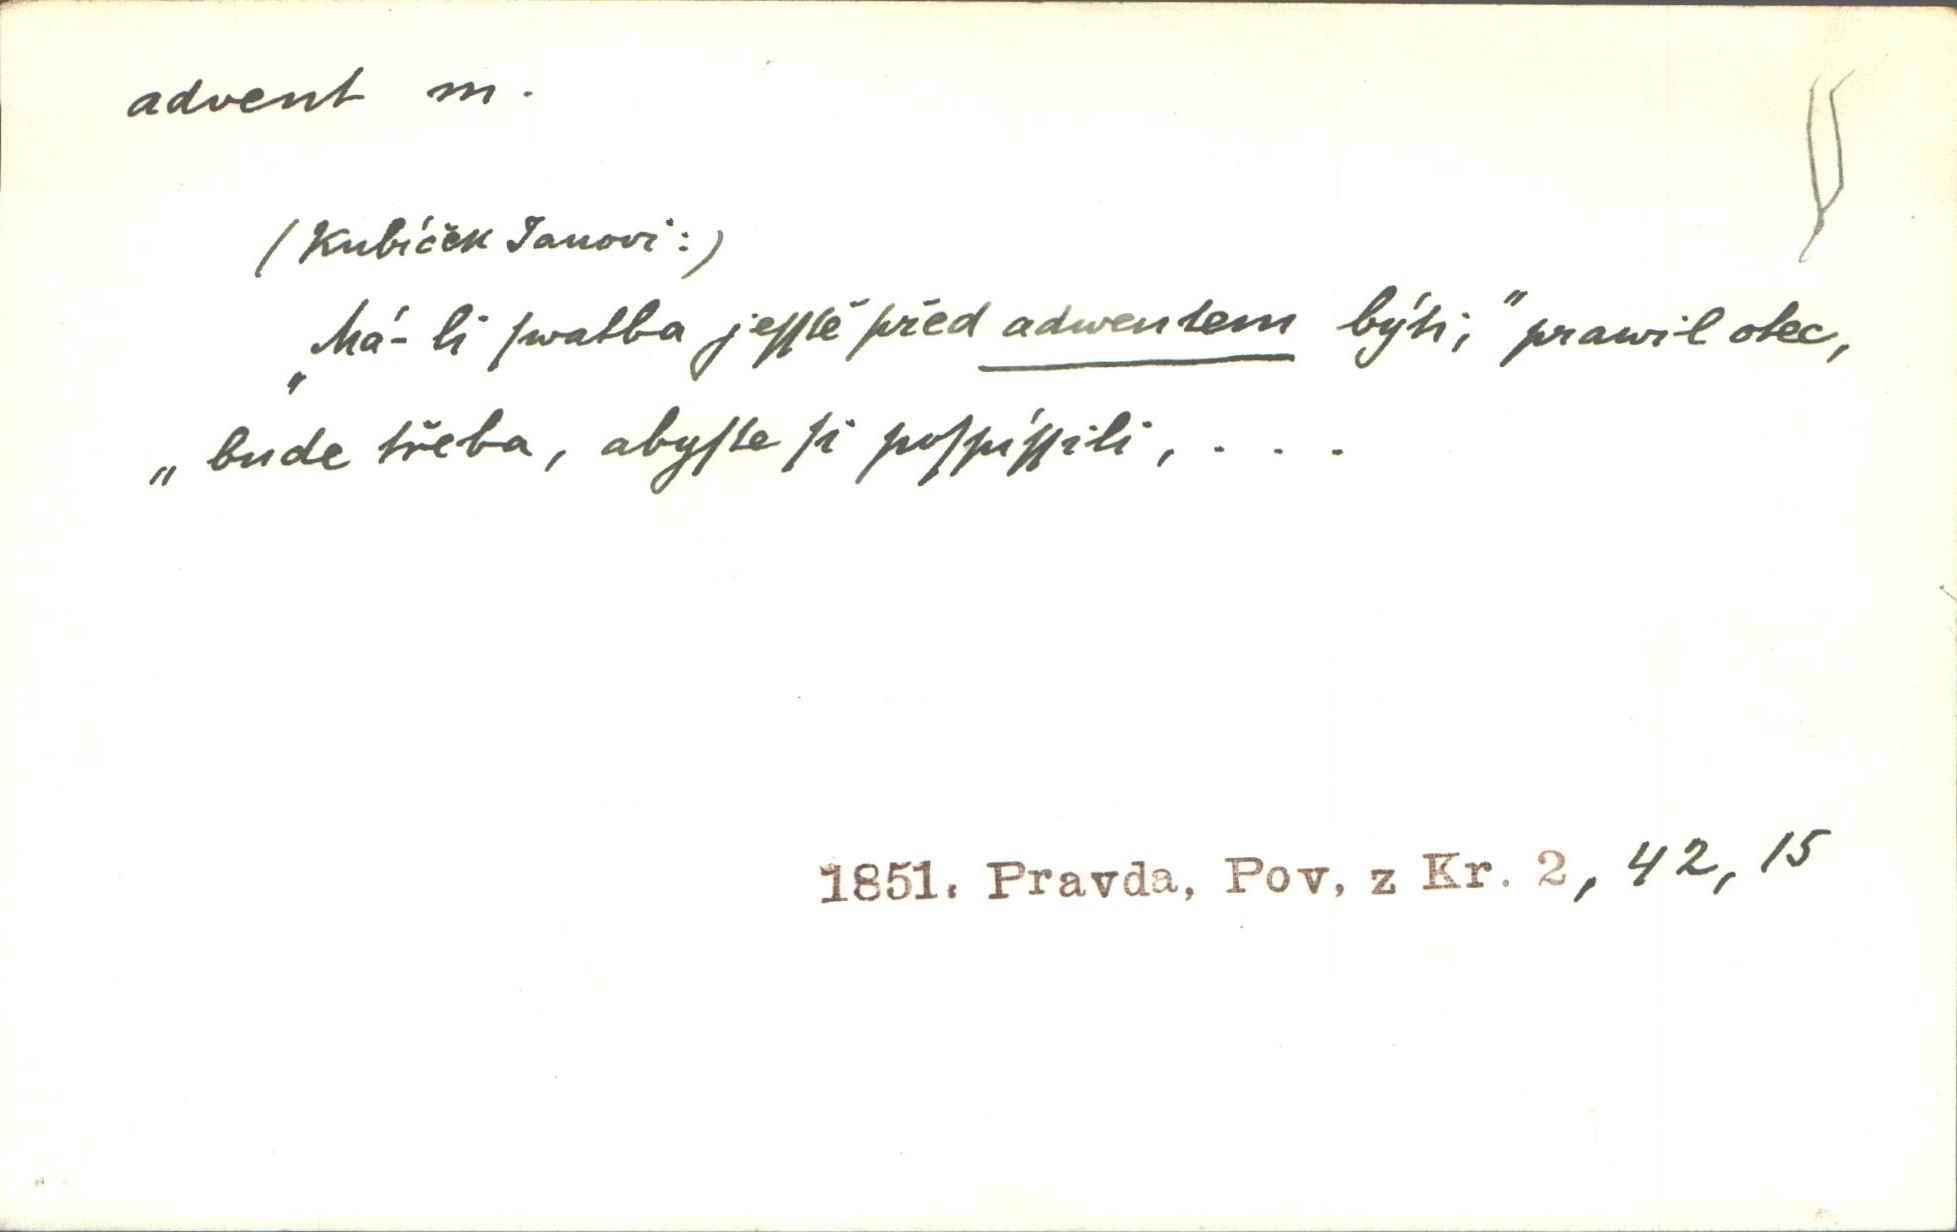 advent m.
(Kubíček Janovi:)
„Má-li ſwatba jeſſtě před adwentem býti,“ prawil otec,
„bude třeba, abyſte ſi poſpíſſili, . . .
1851. Pravda, Pov. z Kr. 2, 42, 15